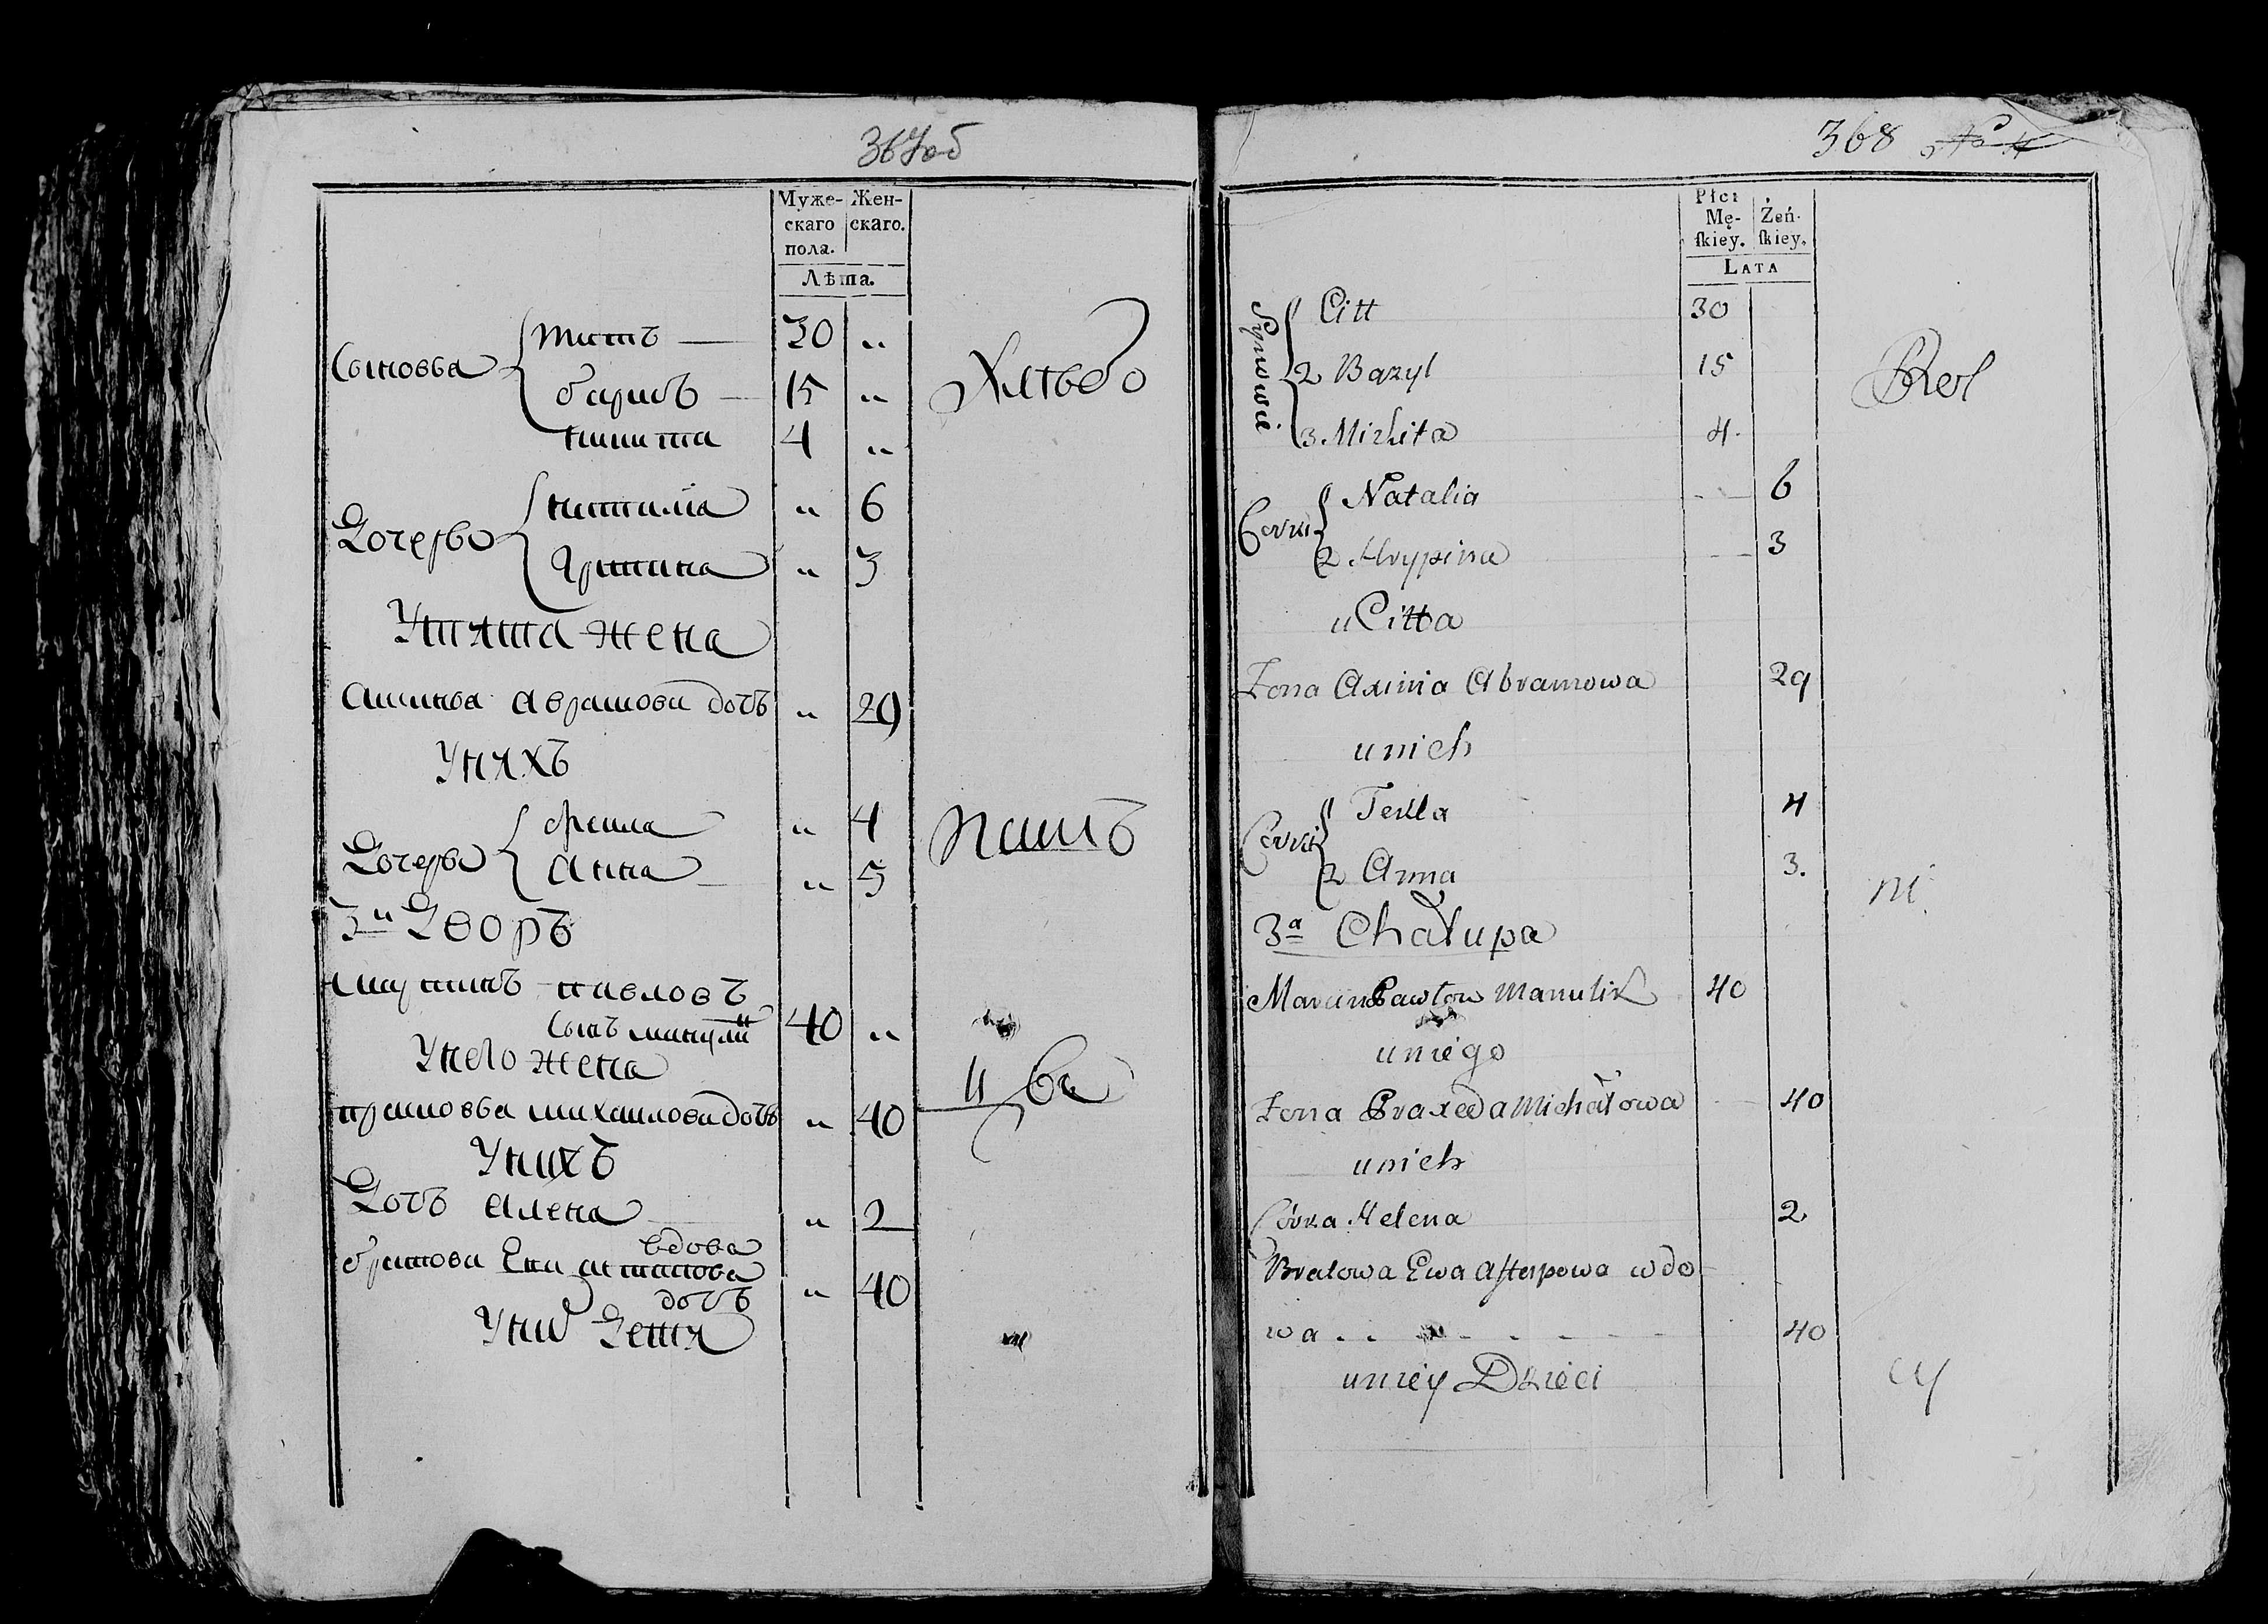 367об
Муже-
скаго
пола.
Жен-
скаго.
Лѣта.
Сыновья
титъ 30 „
15 „
Никита 4 „
Дочерьи
наталiа „ 6
„ 3
У тита жена
Аврамова дочь „ 29
У нихъ
Дочерьи
фекла „ 4
Анна „ 5
3й Дворъ
мартинъ павловъ
сынъ 40 „
У него жена
михаилова дочь „ 40
У нихъ
Дочь алена „ 2
вдова
братова Ева
дочь „ 40
У ней Дети
368 No 4
Płci
Mę-
ſkiey.
Żeń-
ſkiey.
LATA
Synowie
Citt 30
2 Bazyl 15
3 Mikita 4.
Corki
Natalia 6
2 Hrypina 3
u Citta
Zona Axinia Abramowa 29
u nich
Corki
Tekla 4
2 Anna 3.
3a Chałupa
Marcin Pawłow Manulik 40
u niego
Zona Praxeda Michałowa 40
u nich
Córka Helena 2
Bratowa Ewa wdo-
wa 40
u niey Dzieci
ni
cy